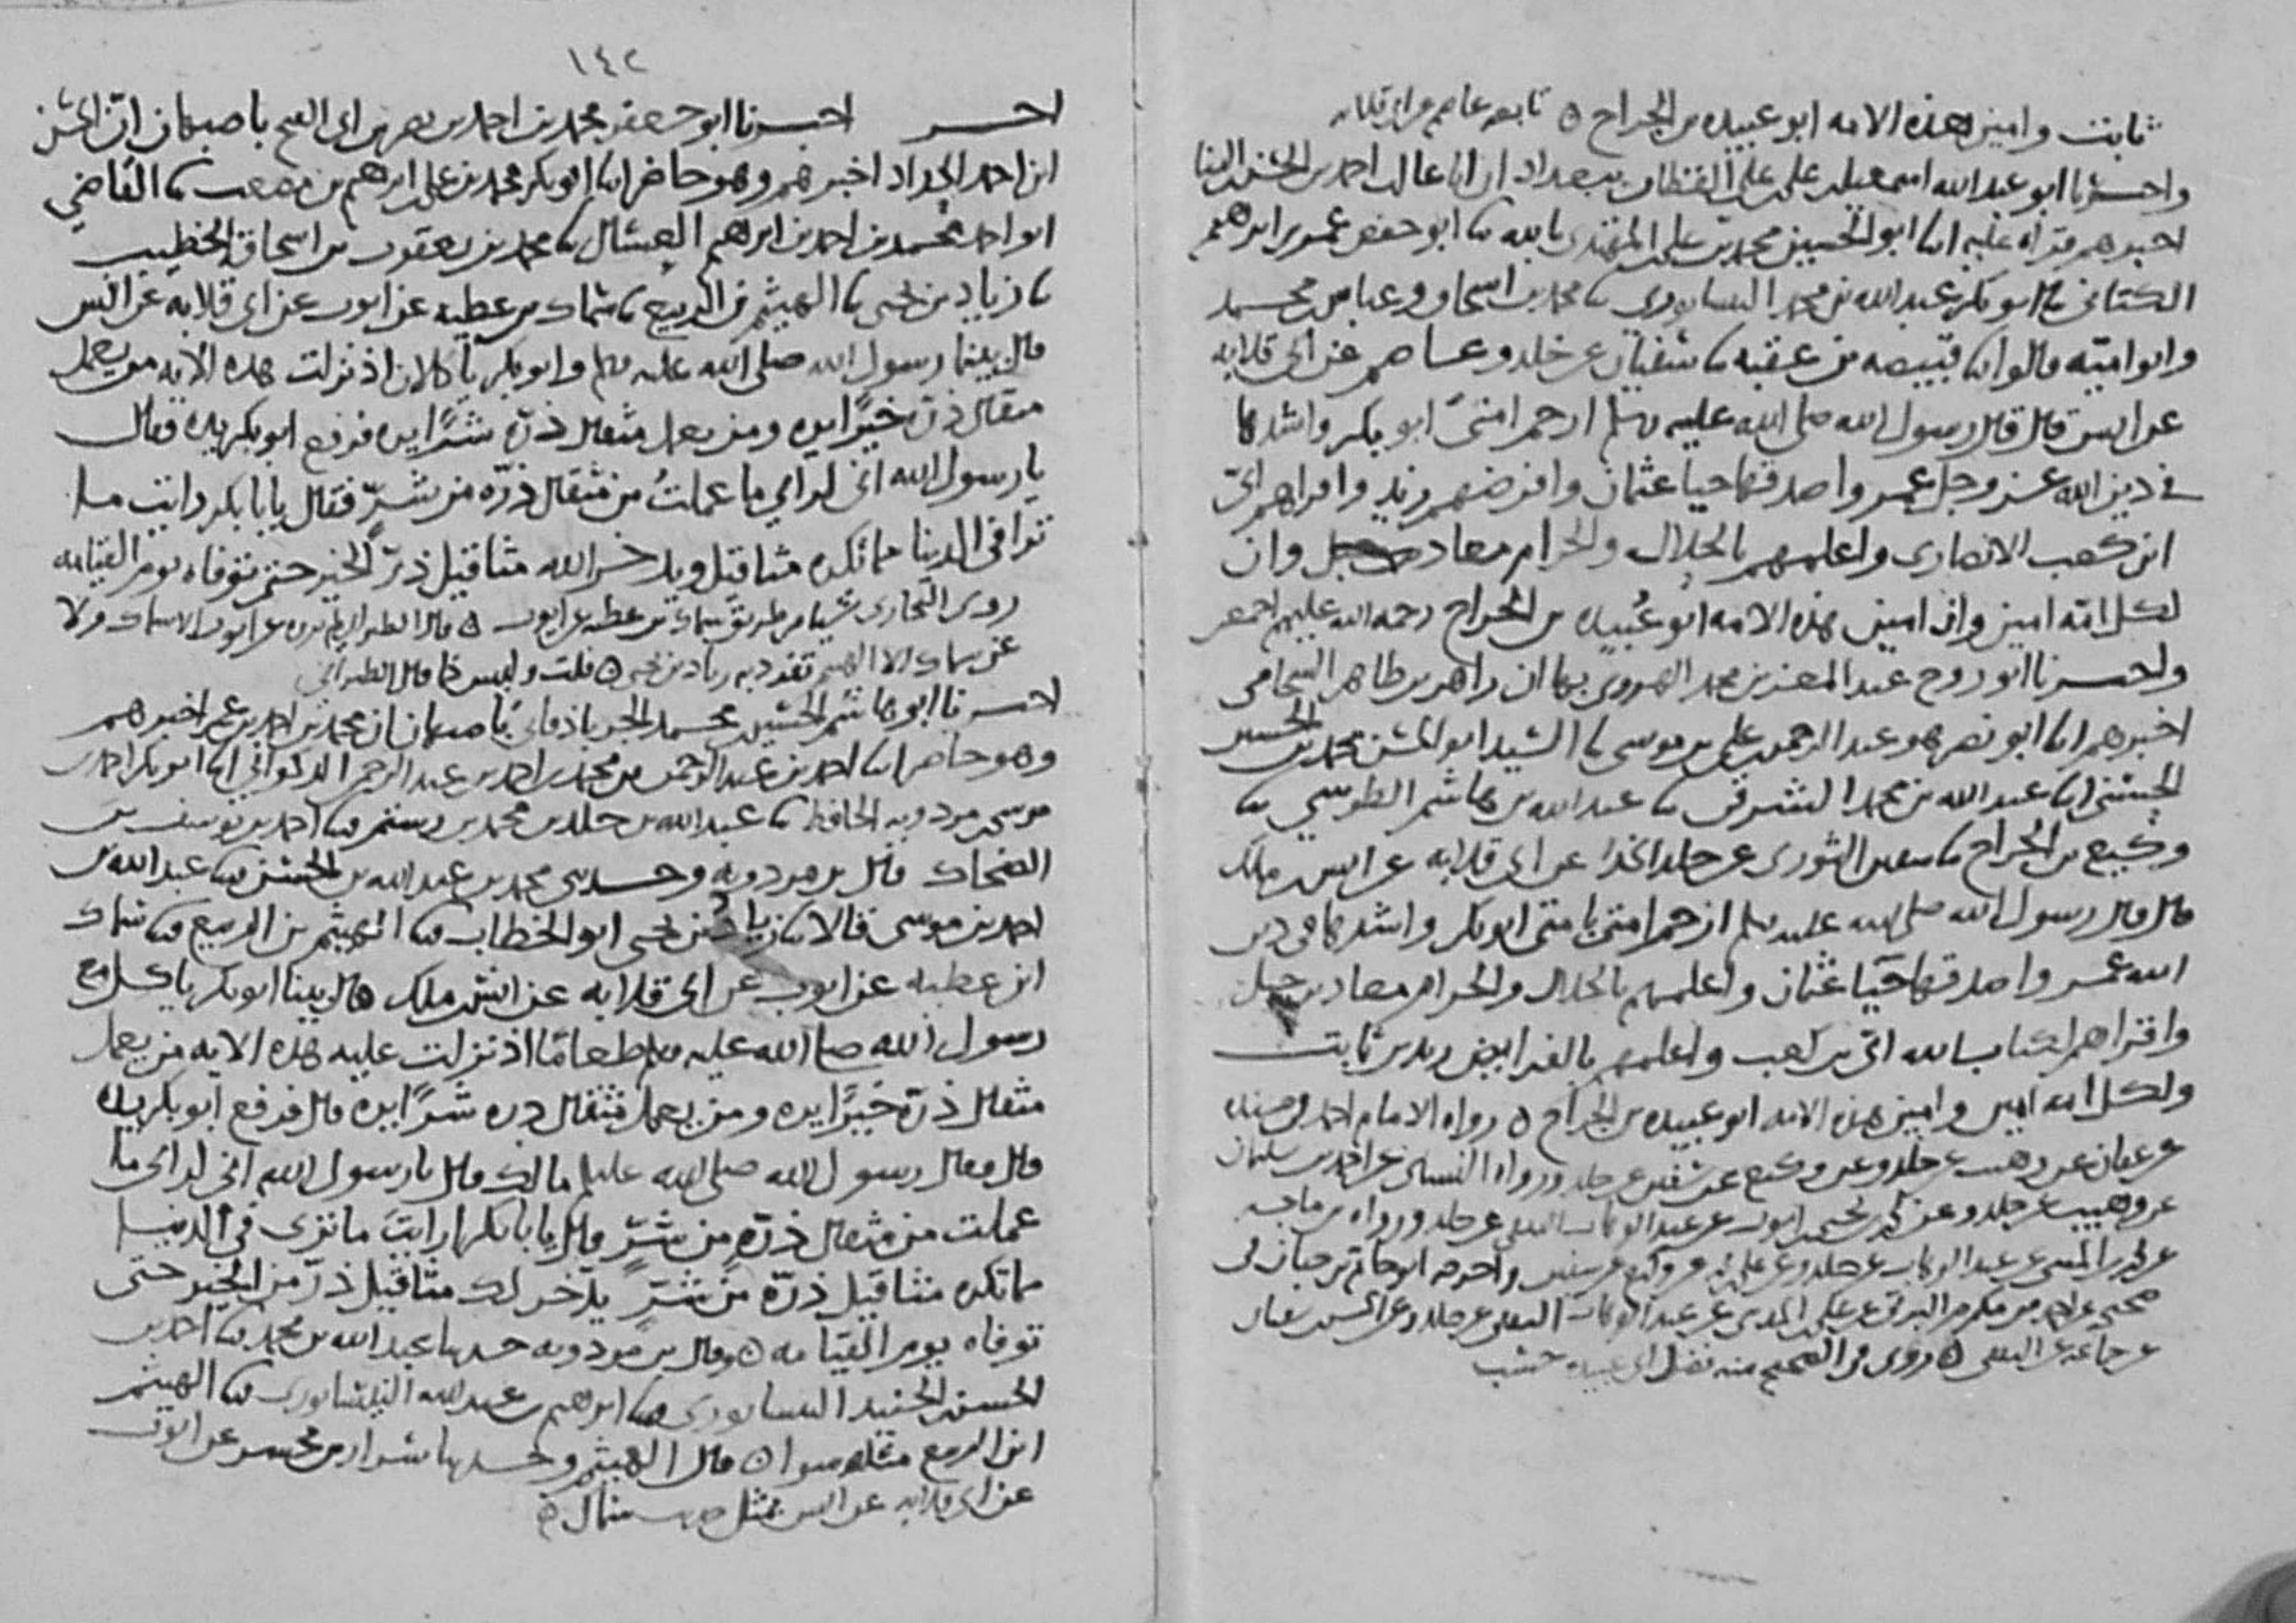 ثابت وامين هذه الامه ابو عبيده بن الجراح ٥ تابعه عاصم عن ابي قلابه
واخبرنا ابو عبد الله اسمعيل بن علي بن علي القطان ببغداد ان ابا غالب احمد بن الحسن بن البنا
اخبرهم قراه عليه ابنا ابو الحسين محمد بن علي بن المهتدي بالله ثنا ابو حفص عمر بن ابرهيم
الكتاني ثنا ابو بكر عبد الله بن محمد النيسابوري ثنا محمد بن اسحاق وعباس بن محمد
وابو اميه قالوا ثنا قبيصه بن عقبه ثنا سفيان عن خلد وعاصم عن ابي قلابه
عن انس قال قال رسول الله صلى الله عليه وسلم ارحم امتي ابو بكر واشدها
في دين الله عز وجل عمر واصدقها حيا عثمان وافرضهم زيد واقراهم ابي
ابن كعب الانصاري واعلمهم بالحلال والحرام معاد جبل وان
لكل امه امين وان امين هذه الامه ابو عبيده بن الجراح رحمه الله عليهم اجمعين
واخبرنا ابو روح عبد المعز بن محمد الهروي بها ان زاهر بن طاهر الشحامي
اخبرهم ابنا ابو نصر هو عبد الرحمن بن علي بن موسى ثنا السيد ابو الحسن محمد بن الحسين
الحسني ابنا عبد الله بن محمد الشرقي ثنا عبد الله بن هاشم الطوسي ثنا
وكيع بن الجراح ثنا سفين الثوري عن خلد الحذا عن ابي قلابه عن انس بن ملك
قال قال رسول الله صلى الله عليه وسلم ارحم امتي بامتي ابو بكر واشدها في دين
الله عمر واصدقها حيا عثمان واعلمهم بالحلال والحرام معاد بن جبل
واقراهم لكتاب الله ابي بن كعب واعلمهم بالفرايض زيد بن ثابت
ولكل امه امين وامين هذه الامه ابو عبيده بن الجراح ٥ رواه الامام احمد في مسنده
عن عفان عن وهيب عن خلد وعن وكيع عن سفين عن خلد ورواه النسائي عن احمد بن سليمان
عن وهيب عن خلد وعن محمد بن يحيى بن ايوب عن عبد الوهاب الثقفي عن خلد ورواه بن ماجه
عن محمد بن المثنى عن عبد الوهاب عن خلد وعن علي بن محمد عن وكيع عن سفين واخرجه ابو حاتم بن حبان
عن عبد الوهاب الثقفي عن خلد وعن الحسن بن سفيان
عن جماعه عن الثقفي ٥ روي في الصحيح منه فضل ابي عبيده حسب
١٤٢
اخر اخبرنا ابو جعفر محمد بن احمد بن نصر بن ابي الفتح باصبهان ان الحسن
ابن احمد الحداد اخبرهم وهو حاضر ابنا ابو بكر محمد بن علي بن ابرهيم بن مصعب ثنا القاضي
ابو احمد محمد بن احمد بن ابرهيم العسال ثنا محمد بن يعقوب بن اسحاق الخطيب
ثنا زياد بن يحيى ثنا الهيثم بن الربيع ثنا سماك بن عطيه عن ايوب عن ابي قلابه عن انس
قال بينما رسول الله صلى الله عليه وسلم وابو بكر ياكلان اذ نزلت هذه الايه من يعمل
مثقال ذرة خيرًا يره ومن يعمل مثقال ذرة شرًا يره فرفع ابو بكر يده وقال
يا رسول الله اني لراي ما عملتُ من مثقال ذرّه من شرٍّ فقال يا بابكر رايت ما
ترا في الدنيا مما تكره مثاقيل ويدخر الله مثاقيل ذرّ الخير حتى توفاه يوم القيامه
روى البخاري شيا من طريق سماك بن عطيه عن ايوب ٥ قال الطبراني لم يروه عن ايوب الا سماك ولا
عن سماك الا الهيثم تفرد به زياد بن يحيى ٥ قلت وليس كما قال الطبراني
اخبرنا ابو هاشم الحسين بن محمد الجرباذقاني باصبهان ان محمد بن احمد بن عمر اخبرهم
وهو حاضر ابنا احمد بن عبد الرحمن بن محمد بن احمد بن عبد الرحمن الذكواني ابنا ابو بكر احمد بن
موسى بن مردويه الحافظ ثنا عبد الله بن خلد بن محمد بن رستم ثنا احمد بن يوسف بن
الضحاك قال بن مردويه وحدثني محمد بن عبد الله بن الحسن ثنا عبد الله بن
احمد بن موسى قالا ثنا زياد بن يحيى ابو الخطاب ثنا الهيثم بن الربيع ثنا سماك
ابن عطيه عن ايوب عن ابي قلابه عن انس بن ملك قال بينا ابو بكر ياكل مع
رسول الله صلى الله عليه وسلم طعامًا اذ نزلت عليه هذه الايه من يعمل
مثقال ذرة خيرًا يره ومن يعمل مثقال ذره شرًا يره قال فرفع ابو بكر يده
قال فقال رسول الله صلى الله عليه وسلم مالك قال يا رسول الله اني لراي ما
عملت من مثقال ذرّه من شرّ قال يا بابكر ارايت ما ترى في الدنيا
مما تكره مثاقيل ذرّه من شرٍّ يدّخر لك مثاقيل ذرّ من الخير حتى
توفاه يوم القيامه ٥ وقال بن مردويه حدثنا عبد الله بن محمد ثنا احمد بن
الحسن بن الجنيد النيسابوري ثنا ابرهيم بن عبد الله النيسابوري ثنا الهيثم
ابن الربيع مثله سوا ٥ قال الهيثم وحدثنا سرار بن مجشر عن ايوب
عن ابي قلابه عن انس بمثل حديث سماك ٥